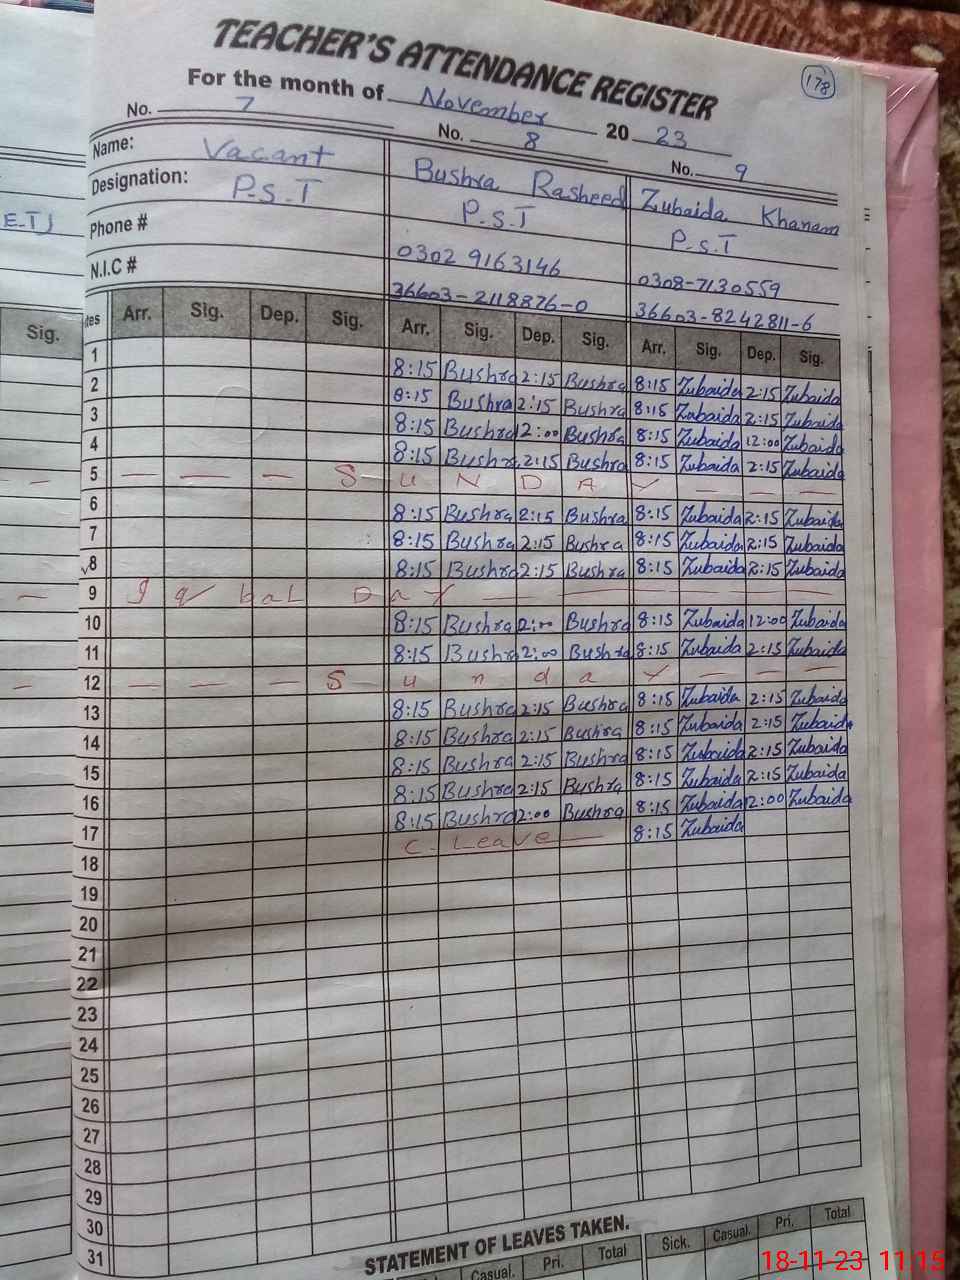 TEACHER'S ATTENDANCE REGISTER
178
For the month of November 20 23
No. 7 No. 8 No. 9
Name: Vacant Bushra Rasheed Zubaida Khanam
Designation: P.S.T P.S.T P.S.T
E.T)
Phone # 0302 9163146 0308-7130559
N.I.C # 36603-2118876-0 36603-8242811-6
Sig. tes Arr. Sig. Dep. Sig. Arr. Sig. Dep. Sig. Arr. Sig. Dep. Sig.
1 8:15 Bushra 2:15 Bushra 8:15 Zubaida 2:15 Zubaida
2 8:15 Bushra 2:15 Bushra 8:15 Zubaida 2:15 Zubaida
3 8:15 Bushra 12:00 Bushra 8:15 Zubaida 12:00 Zubaida
4 8:15 Bushra 2:15 Bushra 8:15 Zubaida 2:15 Zubaida
5 — — — S U N D A Y — — —
6 8:15 Bushra 2:15 Bushra 8:15 Zubaida 2:15 Zubaida
7 8:15 Bushra 2:15 Bushra 8:15 Zubaida 2:15 Zubaida
8 8:15 Bushra 2:15 Bushra 8:15 Zubaida 2:15 Zubaida
9 Iqbal Day — — — — — —
10 8:15 Bushra 12:00 Bushra 8:15 Zubaida 12:00 Zubaida
11 8:15 Bushra 2:00 Bushra 8:15 Zubaida 2:15 Zubaida
12 — — — S u n d a y — — —
13 8:15 Bushra 2:15 Bushra 8:15 Zubaida 2:15 Zubaida
14 8:15 Bushra 2:15 Bushra 8:15 Zubaida 2:15 Zubaida
15 8:15 Bushra 2:15 Bushra 8:15 Zubaida 2:15 Zubaida
16 8:15 Bushra 2:15 Bushra 8:15 Zubaida 2:15 Zubaida
17 8:15 Bushra 12:00 Bushra 8:15 Zubaida 12:00 Zubaida
18 C. Leave — 8:15 Zubaida
19
20
21
22
23
24
25
26
27
28
29
30
31
STATEMENT OF LEAVES TAKEN.
Casual. Pri. Total Sick. Casual. Pri. Total
18-11-23 11:15